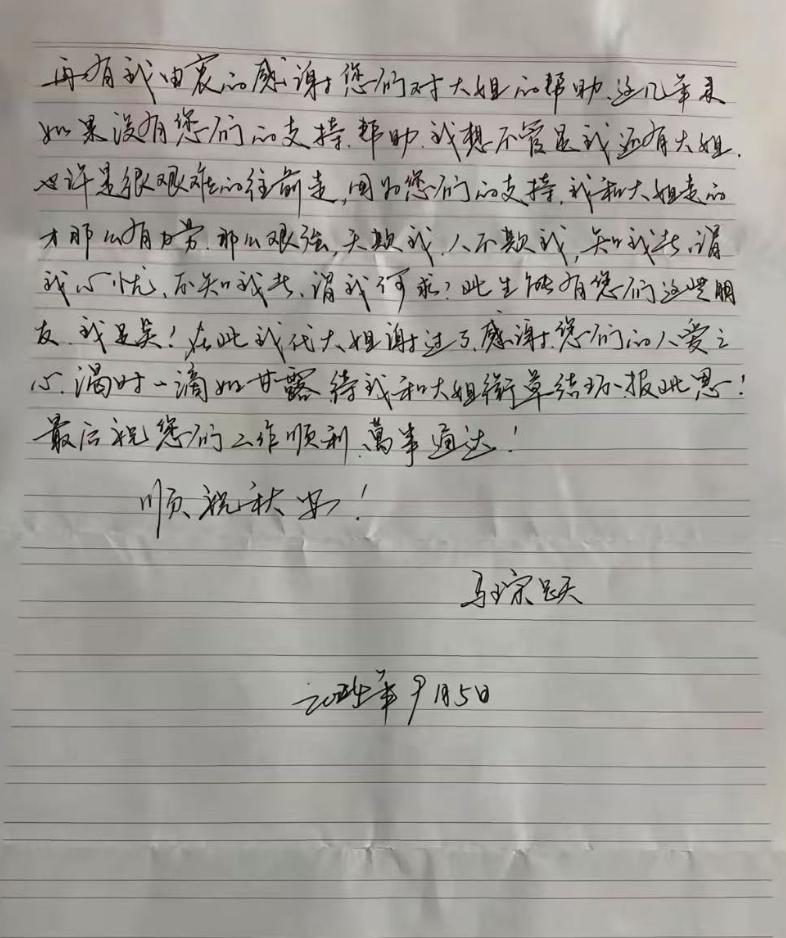 再有我由衷的感谢您们对大姐的帮助、这几年来
如果没有您们的支持.帮助.我想不管是我还有大姐.
也许是很艰难的往前走,因为您们的支持.我和大姐走的
才那么有力劳.那么艰强,天欺我.人不欺我,知我者.谓
我心忧、不知我者、谓我何求?此生能有您们这些朋
友.我足矣!在此我代大姐谢过了.感谢您们的人爱之
心.渴时一滴如甘露待我和大姐衔草结环报此恩!
最后祝您们工作顺利.萬事通达!
顺祝秋安!
马宗跃
9月5日